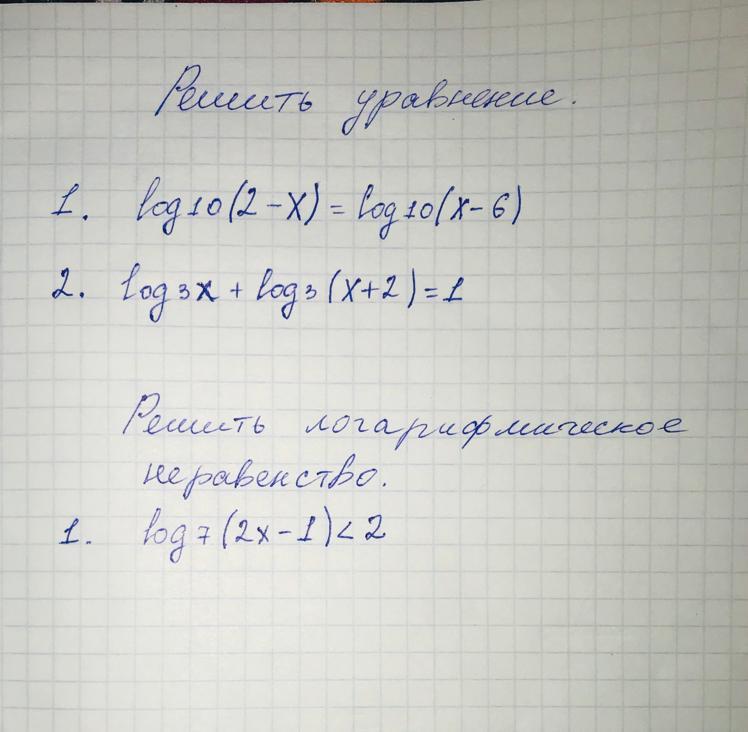 Решить уравнение.
1. log10(2-x)=log10(x-6)
2. log3x+log3(x+2)=1
Решить логарифмическое
неравенство.
1. log7(2x-1)<2